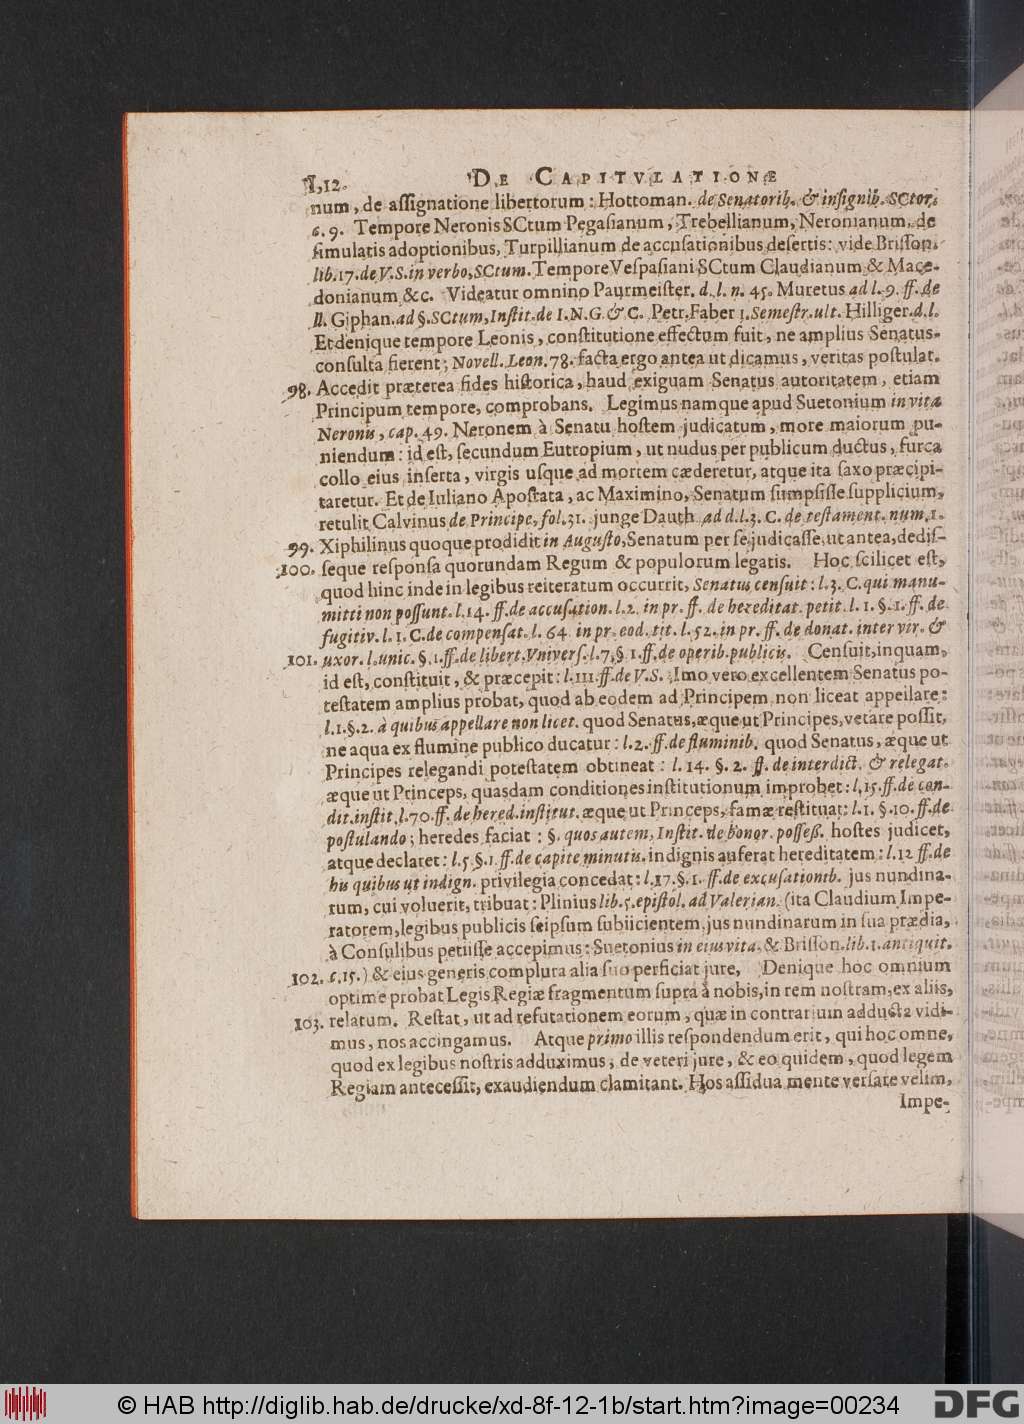 112. DE CAPITVLATIONE
num, de aſſignatione libertorum: Hottoman. de Senatorib. & inſignib. SCtor.
c. 9. Tempore Neronis SCtum Pegaſianum, Trebellianum, Neronianum, de
ſimulatis adoptionibus, Turpillianum de accuſationibus deſertis: vide Briſſon.
lib. 17. de V. S. in verbo, SCtum. Tempore Veſpaſiani SCtum Claudianum & Mace-
donianum &c. Videatur omnino Paurmeiſter. d. l. n. 45. Muretus ad l. 9. ff. de
ll. Giphan. ad §. SCtum, Inſtit. de I. N. G. & C. Petr. Faber 1. Semeſtr. ult. Hilliger. d. l.
Et denique tempore Leonis, conſtitutione effectum fuit, ne amplius Senatus-
conſulta fierent; Novell. Leon. 78. facta ergo antea ut dicamus, veritas poſtulat.
98. Accedit præterea fides hiſtorica, haud exiguam Senatus autoritatem, etiam
Principum tempore, comprobans. Legimus namque apud Suetonium in vita
Neronis, cap. 49. Neronem à Senatu hoſtem judicatum, more maiorum pu-
niendum: id eſt, ſecundum Eutropium, ut nudus per publicum ductus, furca
collo eius inſerta, virgis uſque ad mortem cæderetur, atque ita ſaxo præcipi-
taretur. Et de Iuliano Apoſtata, ac Maximino, Senatum ſumpſiſſe ſupplicium,
retulit Calvinus de Principe, fol. 31. junge Dauth. ad d. l. 3. C. de teſtament. num. 1.
99. Xiphilinus quoque prodidit in Auguſto, Senatum per ſe judicaſſe, ut antea, dediſ-
100. ſeque reſponſa quorundam Regum & populorum legatis. Hoc ſcilicet eſt,
quod hinc inde in legibus reiteratum occurrit, Senatus cenſuit: l. 3. C. qui manu-
mitti non poſſunt. l. 14. ff. de accuſation. l. 2. in pr. ff. de hereditat. petit. l. 1. §. 1. ff. de
fugitiv. l. 1. C. de compenſat. l. 64. in pr. eod. tit. l. 52. in pr. ff. de donat. inter vir. &
101. uxor. l. unic. §. 1. ff. de libert. Vniverſ. l. 7, § 1. ff. de operib. publicis. Cenſuit, inquam,
id eſt, conſtituit, & præcepit: l. 111. ff. de V. S. Imo vero excellentem Senatus po-
teſtatem amplius probat, quod ab eodem ad Principem non liceat appellare:
l. 1. §. 2. à quibus appellare non licet. quod Senatus, æque ut Principes, vetare poſſit,
ne aqua ex flumine publico ducatur: l. 2. ff. de fluminib. quod Senatus, æque ut
Principes relegandi poteſtatem obtineat: l. 14. §. 2. ff. de interdict. & relegat.
æque ut Princeps, quasdam conditiones inſtitutionum improbet: l. 15. ff. de con-
dit. inſtit. l. 70. ff. de hered. inſtitut. æque ut Princeps, famæ reſtituat: l. 1. §. 10. ff. de
poſtulando; heredes faciat: §. quos autem, Inſtit. de bonor. poſſeß. hoſtes judicet,
atque declaret: l. 5. §. 1. ff. de capite minutis. indignis auferat hereditatem: l. 12 ff. de
his quibus ut indign. privilegia concedat: l. 17. §. 1. ff. de excuſationib. jus nundina-
rum, cui voluerit, tribuat: Plinius lib. 5. epiſtol. ad Valerian. (ita Claudium Impe-
ratorem, legibus publicis ſeipſum ſubiicientem, jus nundinarum in ſua prædia,
à Conſulibus petiiſſe accepimus: Suetonius in eius vita. & Briſſon. lib. 1. antiquit.
102. c. 15.) & eius generis complura alia ſuo perficiat jure, Denique hoc omnium
optime probat Legis Regiæ fragmentum ſupra à nobis, in rem noſtram, ex aliis,
103. relatum. Reſtat, ut ad refutationem eorum, quæ in contrarium adducta vidi-
mus, nos accingamus. Atque primo illis reſpondendum erit, qui hoc omne,
quod ex legibus noſtris adduximus, de veteri jure, & eo quidem, quod legem
Regiam anteceſſit, exaudiendum clamitant. Hos aſſidua mente verſare velim,
Impe-
© HAB http://diglib.hab.de/drucke/xd-8f-12-1b/start.htm?image=00234
DFG